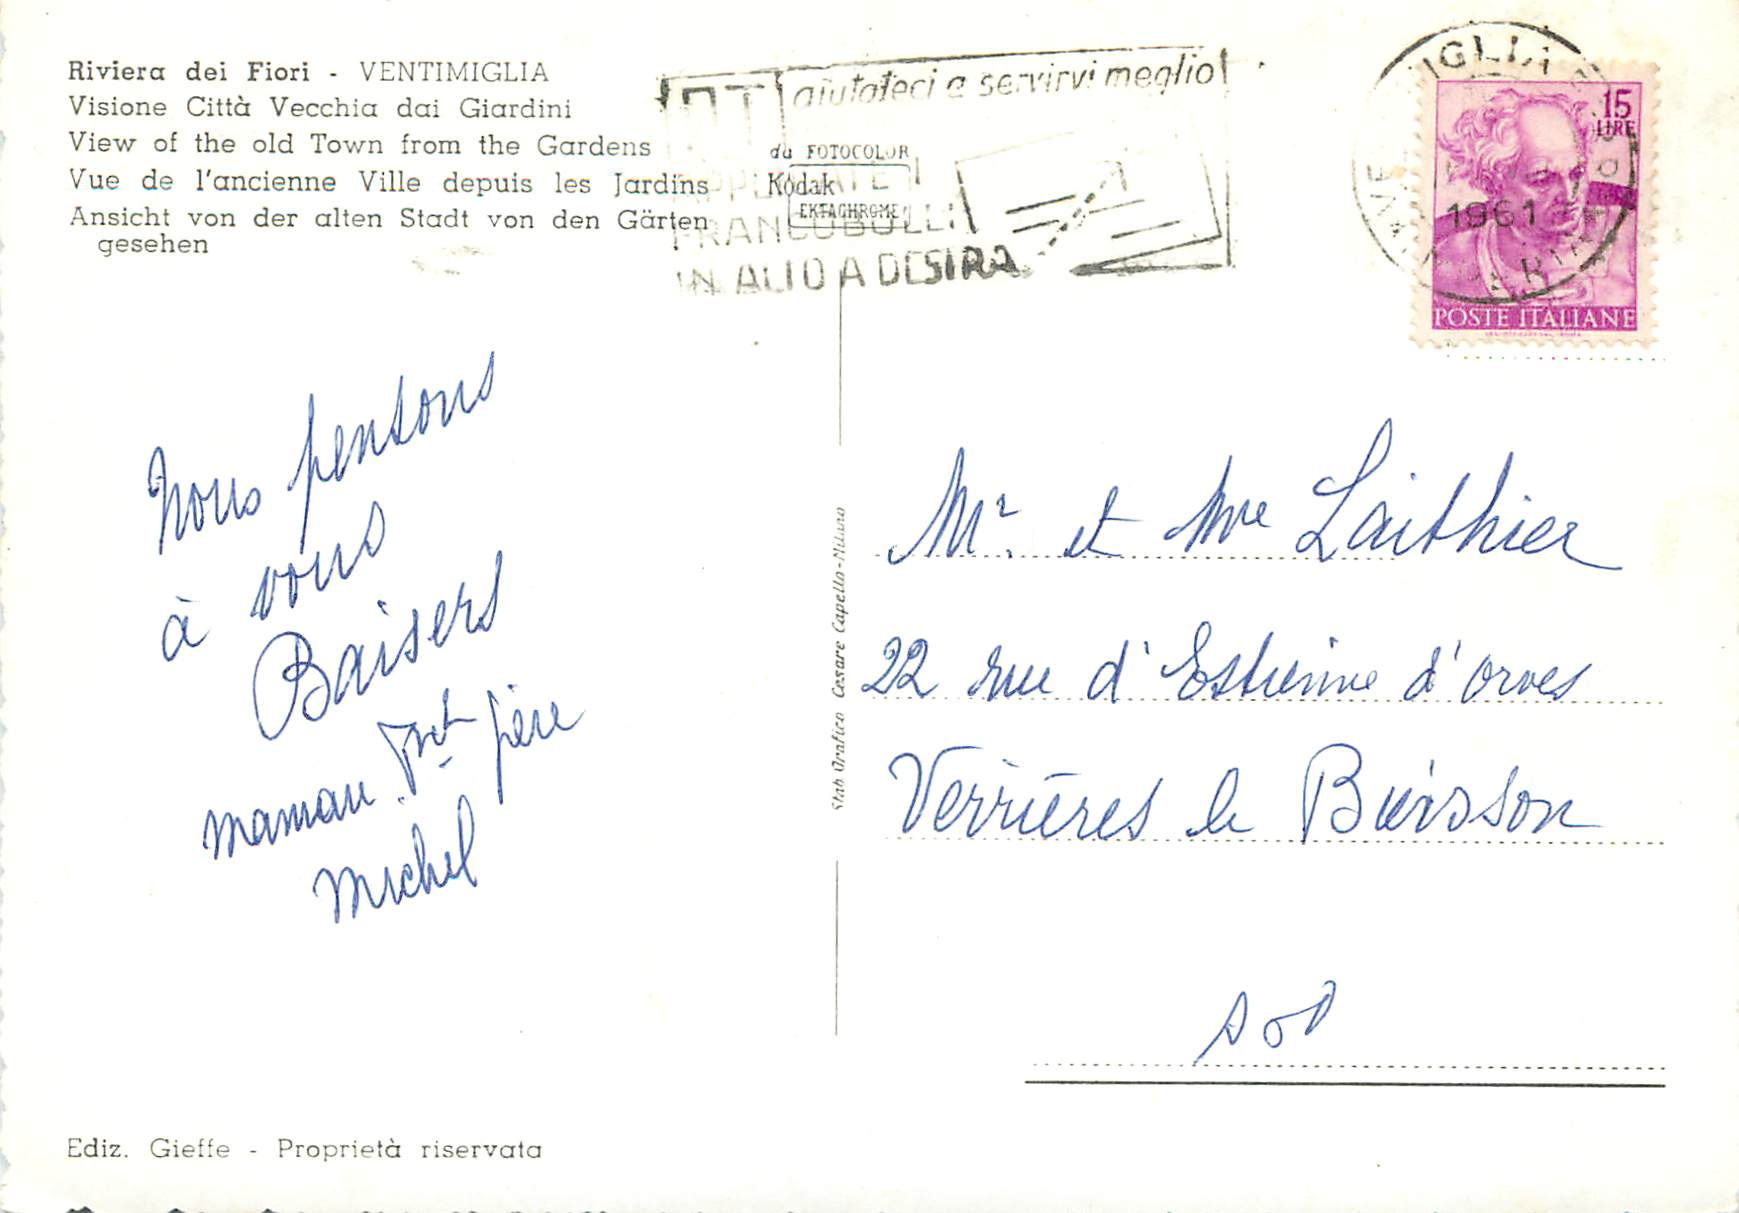 Riviera dei Fiori - VENTIMIGLIA
Visione Città Vecchia dai Giardini
View of the old Town from the Gardens
Vue de l'ancienne Ville depuis les Jardins
Ansicht von der alten Stadt von den Gärten
gesehen
aiutateci a servirvi meglio
FRANCOBOLLI
IN ALTO A DESTRA
da FOTOCOLOR
Kodak
EKTACHROME
1961
15
LIRE
POSTE ITALIANE
Nous pensons
à vous
Baisers
maman père
Michel
Stab Grafico Cesare Capello - Milano
Mr. et Mme Laithier
22 rue d'Estienne d'Orves
Verrières le Buisson
S o S
Ediz. Gieffe - Proprietà riservata